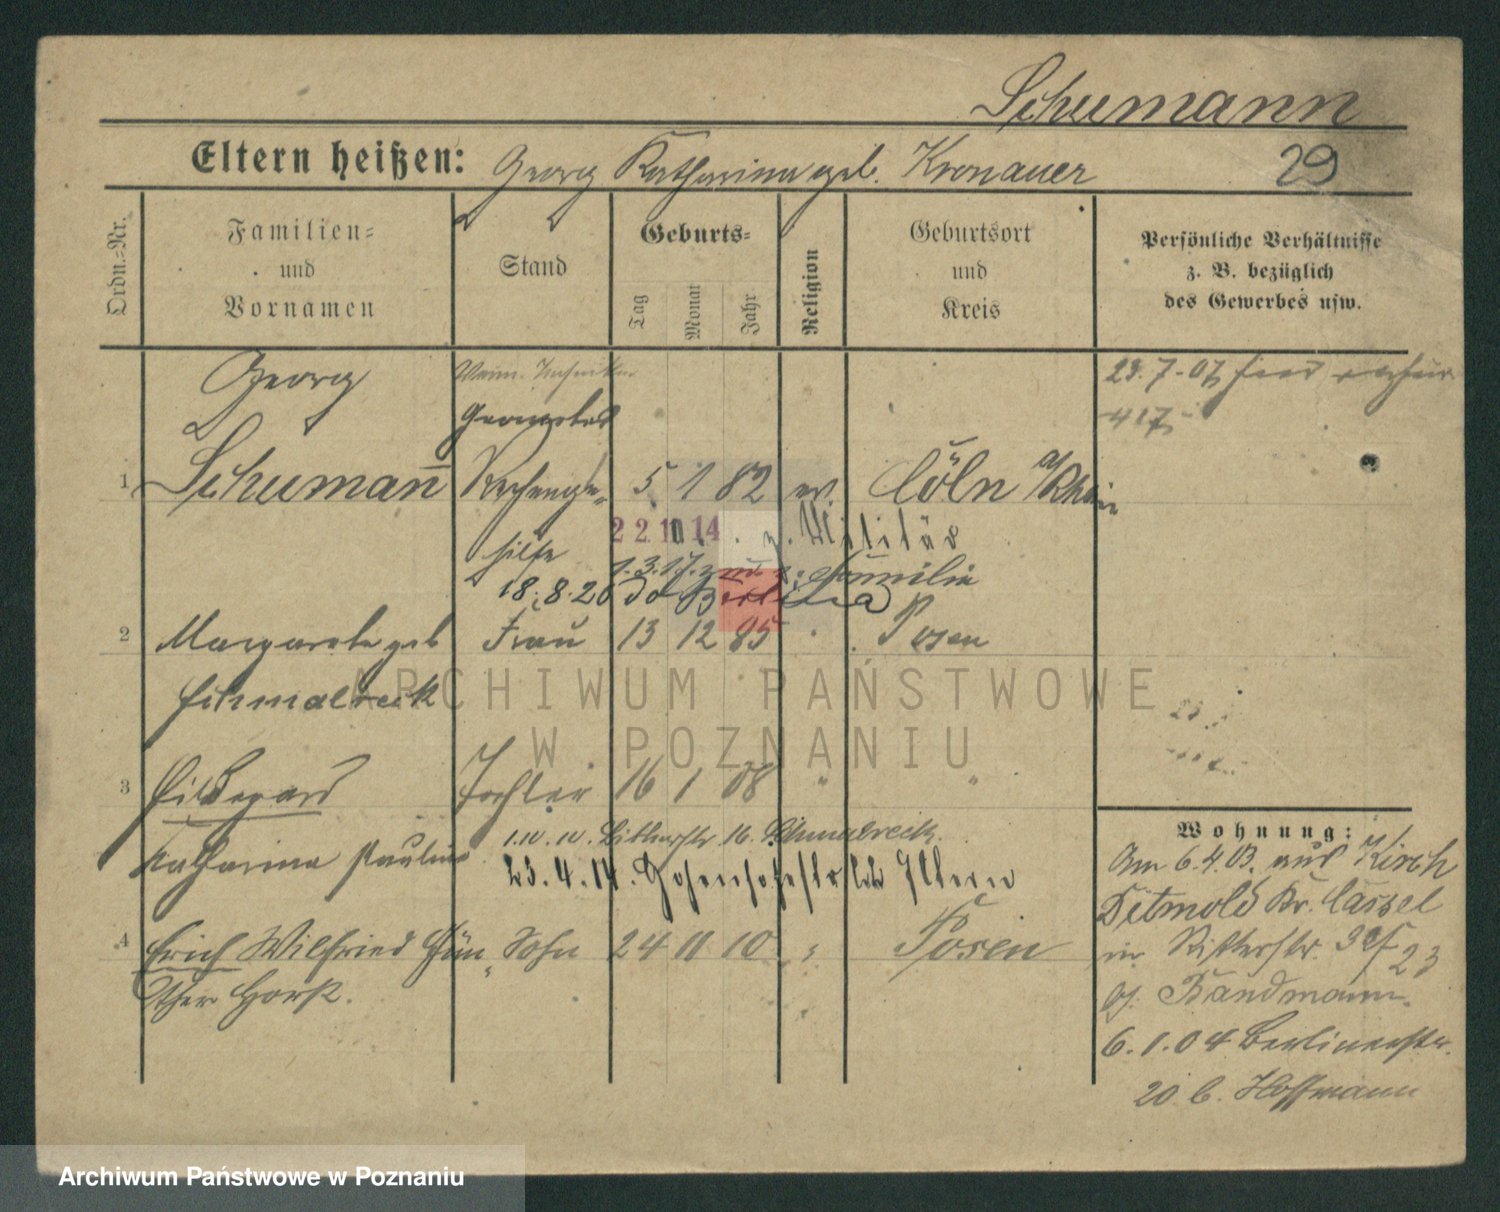 Schumann
Eltern heißen: Georg Katharina geb. Kronauer 29
Ordn.-Nr.
Familien-
und
Vornamen
Stand
Geburts-
Tag
Monat
Jahr
Religion
Geburtsort
und
Kreis
Persönliche Verhältnisse
z. B. bezüglich
des Gewerbes usw.
Georg
23.7.07
1 Schumann̄ 5 1 82 ev. Cöln a/Rhein
hilfe
22 10 14. z. Militär
1.3.17. z. Familie
18.8.20
2 Margarete geb Frau 13 12 85 Posen
Schmalreck
ARCHIWUM PAŃSTWOWE
W POZNANIU
3 Hildegard Tochter 16 1 08 " "
Katharina Pauline
16. Schmalreck.
23.4.14. Eltern
4 Erich Wilfried Gün- Sohn 24 11 10 " Posen
ther Horst.
Wohnung:
Am 6.4.03. aus Kirch
Ditmold Kr. Cassel
in Ritterstr. 23
bei Bandmann.
6.1.04 Berlinerstr.
20 b. Hoffmann
Archiwum Państwowe w Poznaniu